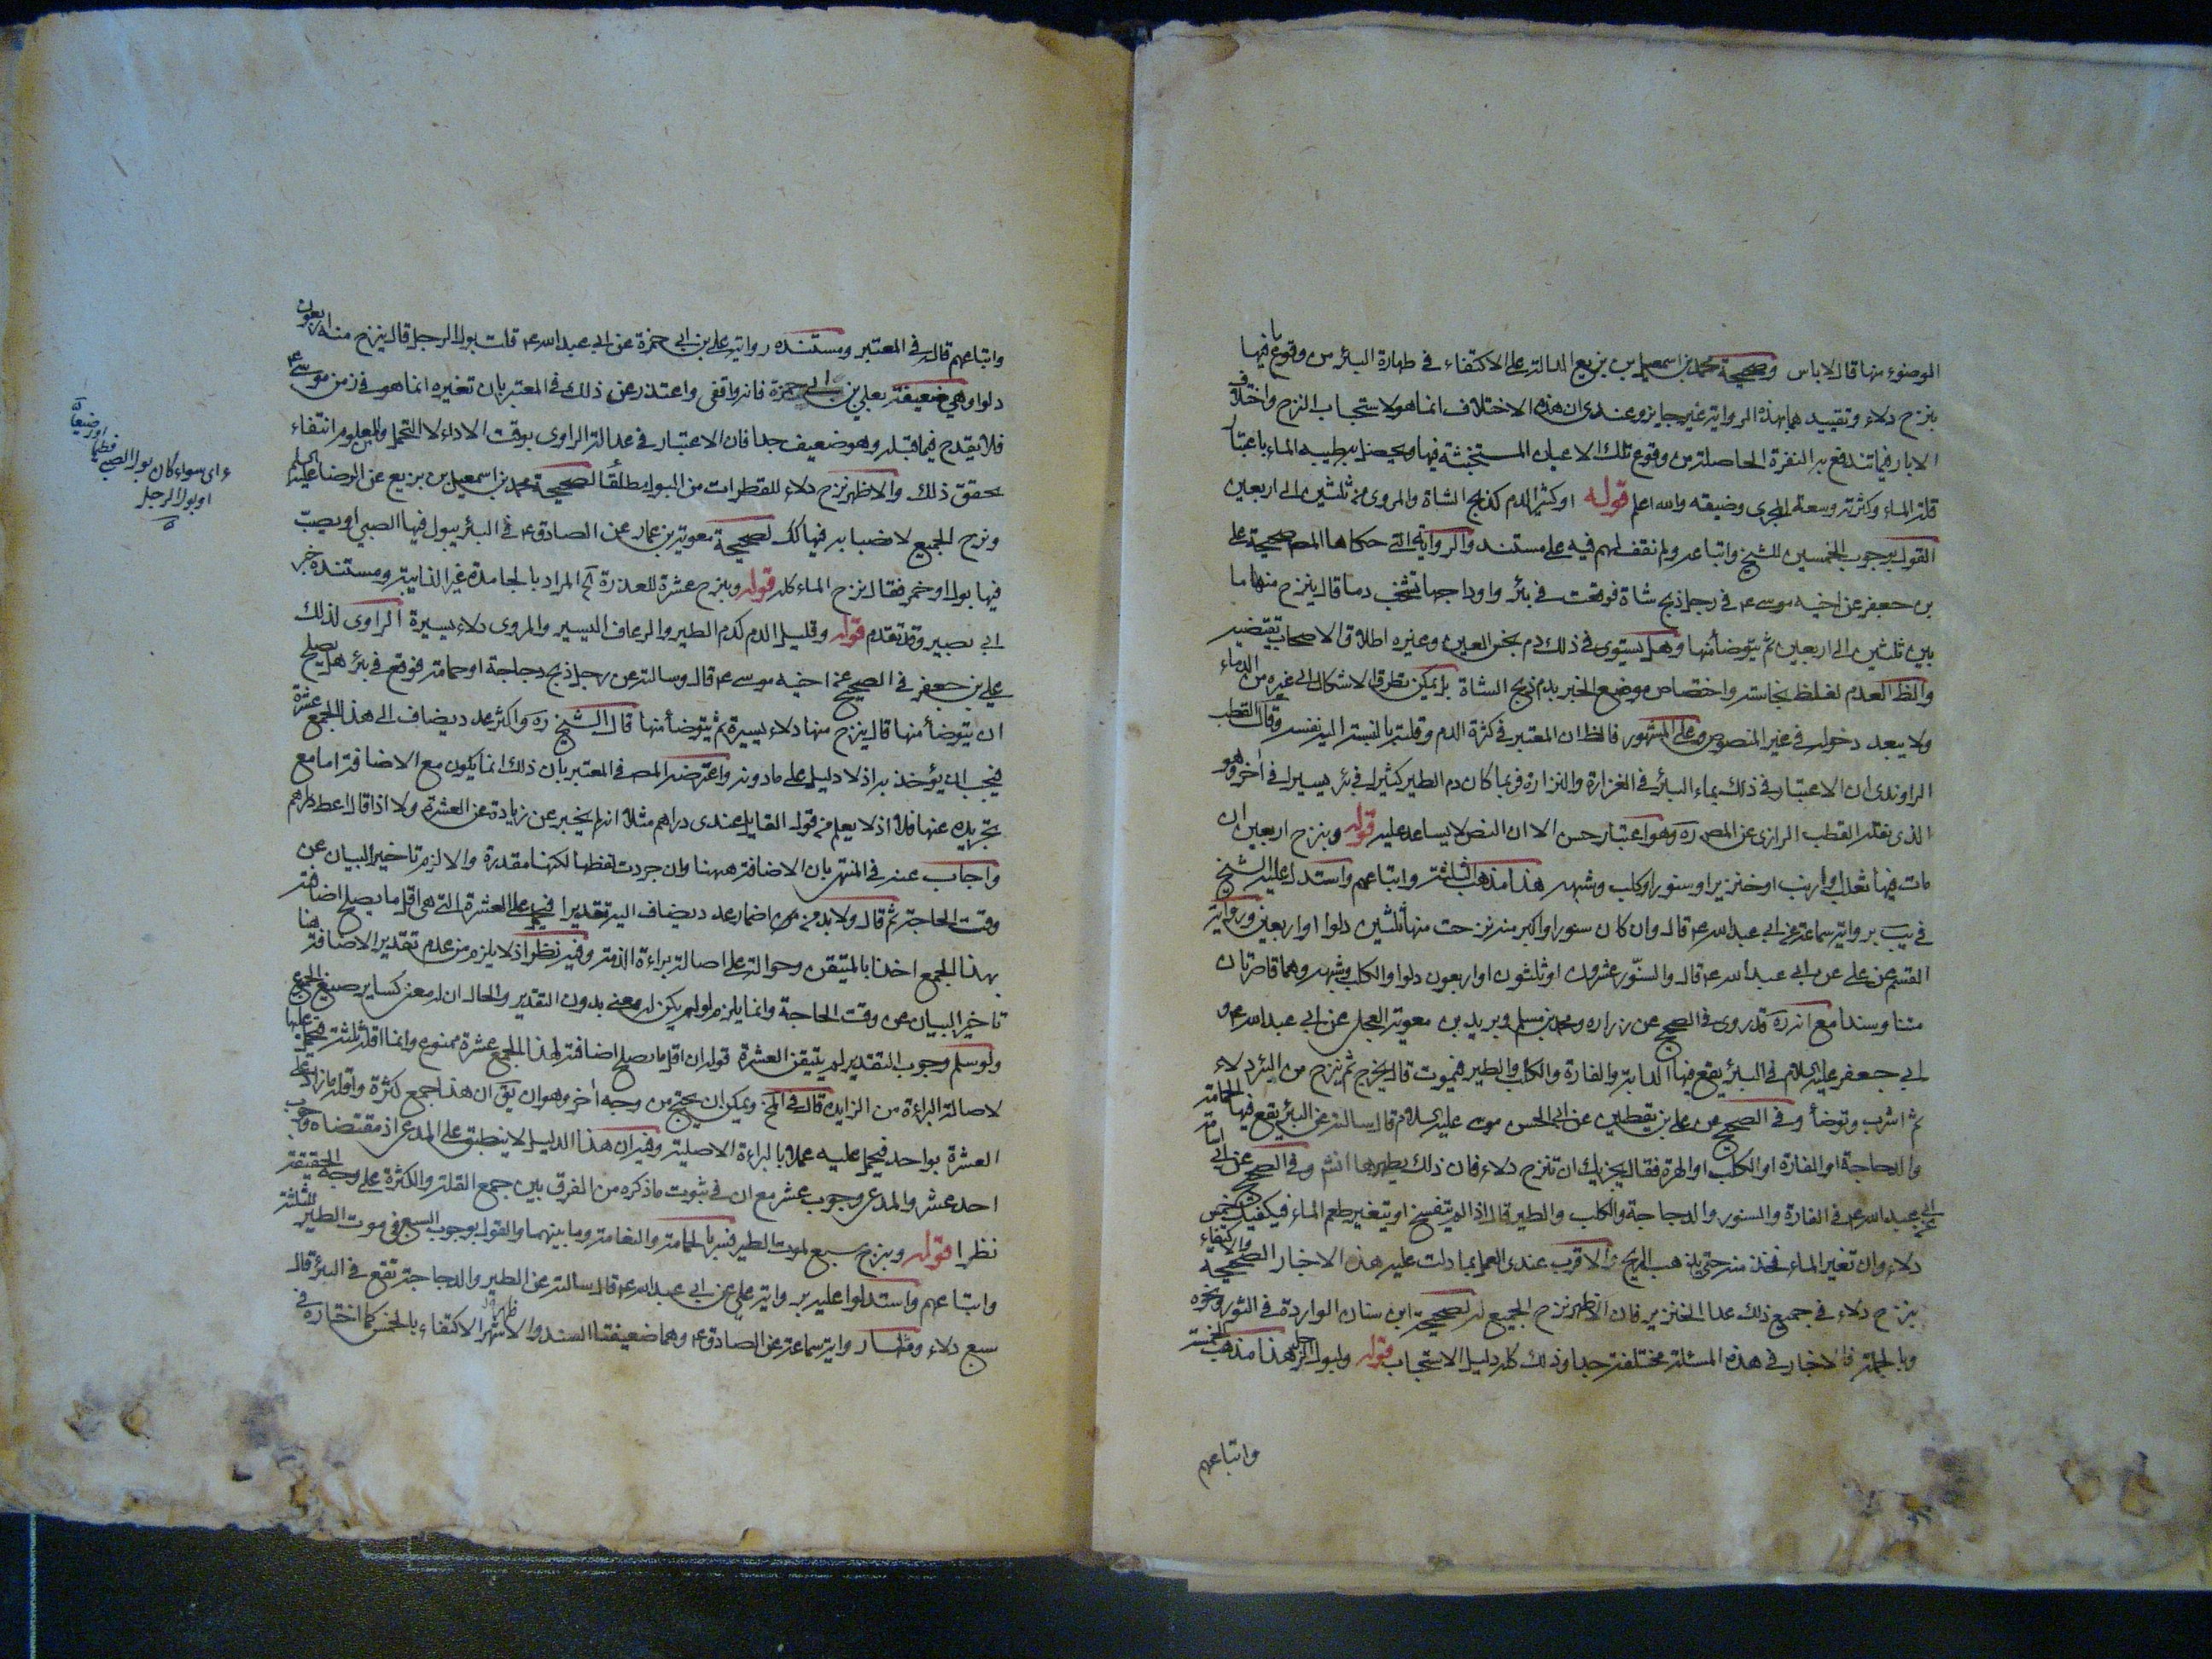 الوضوء منها قال لا باس وصحيحة محمد بن اسمعيل بن بزيع الدالة على الاكتفاء في طهارة البئر من وقوع ما فيها
بنزح دلاء وتقييدهما بهذه الرواية غير جايز وعندى ان هذه الاختلاف انما هو لاستحباب النزح واختلاف
الابار فيما تندفع به النفرة الحاصلة من وقوع تلك الاعيان المستخبثة فيها ويحصل به طيب الماء باعتبار
قلة الماء وكثرته وسعة المجرى وضيقه والله اعلم قوله او كثير الدم كذبح الشاة والمروى من ثلثين الى اربعين
القول بوجوب الخمسين للشيخ واتباعه ولم نقف لهم فيه على مستند والرواية التى حكاها المص صحيحة على
بن جعفر عن اخيه موسى ع في رجل ذبح شاة فوقعت في بئر واوداجها تشخب دما قال ينزح منها ما
بين ثلثين الى اربعين ثم يتوضأ منها وهل يستوى في ذلك دم نجس العين وغيره اطلاق الاصحاب يقتضيه
والظ العدم لغلظ نجاسته واختصاص موضع الخبر بدم ذبح الشاة بل يمكن تطرق الاشكال الى غيره من الدماء
ولا يبعد دخوله في غير المنصوص وعلى المشهور فالظ ان المعتبر في كثرة الدم وقلته بالنسبة اليه نفسه وقال القطب
الراوندى ان الاعتبار في ذلك بماء البئر في الغزارة والنزارة فربما كان دم الطير كثيرا في بئر يسيرا في اخرى وهو
الذى نقله القطب الرازى عن المص ره وهو اعتبار حسن الا ان النص لا يساعد عليه قوله وبنزح اربعين ان
مات فيها ثعلب او ارنب او خنزير او سنور او كلب وشبهه هذا مذهب الثلثة واتباعهم واستدل عليه الشيخ
في يب برواية سماعة عن ابي عبد الله ع قال وان كان سنورا او اكبر منه نزحت منها ثلثين دلوا او اربعين ورواية
القسم عن على عن ابى عبد الله ع قال والسنور عشرون او ثلثون او اربعون دلوا والكلب وشبهه وهما قاصرتان
متنا وسندا مع انه ره قد روى في الصحيح عن زراره ومحمد بن مسلم وبريد بن معوية العجلى عن ابي عبد الله ع و
ابى جعفر عليه السلام في البئر يقع فيها الدابة والفارة والكلب والطير فيموت قال يخرج ثم ينزح من البئر دلاء
ثم اشرب وتوضأ وفي الصحيح عن على بن يقطين عن ابى الحسن موسى عليه السلام قال سالته عن البئر يقع فيها الحمامة
والدجاجة او الفارة او الكلب او الهرة فقال يجزيك ان تنزح دلاء فان ذلك يطهرها انش وفي الصحيح عن ابى اسامة
عن ابى عبد الله ع في الفارة والسنور والدجاجة والكلب والطير قال اذا لم يتفسخ او يتغير طعم الماء فيكفيك خمس
دلاء وان تغير الماء فخذ منه حتى يذهب الريح والاقرب عندى العمل بما دلت عليه هذه الاخبار الصحيحة والاكتفاء
بنزح دلاء في جميع ذلك عدا الخنزير فان الاظهر نزح الجميع له لصحيحة ابن سنان الواردة في الثور ونحوه
وبالجملة فالاخبار في هذه المسئلة مختلفة جدا وذلك كله دليل الاستحباب قوله ولبول الرجل هذا مذهب الخمسة
واتباعهم
واتباعهم قال في المعتبر ومستنده رواية على بن ابى حمزة عن ابي عبد الله ع قلت بول الرجل قال ينزح منه اربعون
دلوا وهي ضعيفة بعلى بن ابى حمزة فانه واقفى واعتذر عن ذلك في المعتبر بان تغيره انما هو في زمن موسى ع
فلا يقدح فيما قبله وهو ضعيف جدا فان الاعتبار في عدالة الراوى بوقت الاداء لا التحمل والمعلوم انتفاء
تحقق ذلك والاظهر نزح دلاء للقطرات من البول مطلقا لصحيحة محمد بن اسمعيل بن بزيع عن الرضا عليه السلام
ونزح الجميع لانصبابه فيها كك لصحيحة معوية بن عمار عن الصادق ع في البئر يبول فيها الصبي او يصب
فيها بول او خمر فقال ينزح الماء كله قوله وبنزح عشرة للعذرة آه المراد بالجامدة غير الذايبة ومستنده خبر
ابى بصير وقد تقدم قوله وقليل الدم كدم الطير والرعاف اليسير والمروى دلاء يسيرة الراوى لذلك
على بن جعفر في الصحيح عن اخيه موسى ع قال وسالته عن رجل ذبح دجاجة او حمامة فوقع في بئر هل يصلح
ان يتوضأ منها قال ينزح منها دلاء يسيرة ثم يتوضأ منها قال الشيخ ره واكثر عدد يضاف الى هذا الجمع عشرة
فيجب ان يؤخذ به اذ لا دليل على ما دونه واعترضه المص في المعتبر بان ذلك انما يكون مع الاضافة اما مع
تجريده عنها فلا اذ لا يعلم من قول القايل عندى دراهم مثلا انه لم يخبر عن زيادة عن العشرة ولا اذا قال اعطه دراهم
واجاب عنه في المنتهى بان الاضافة ههنا وان جردت لفظها لكنها مقدرة والا لزم تاخير البيان عن
وقت الحاجة ثم قال ولا بد من اضمار عدد يضاف اليه تقديرا فيحمل على العشرة التى هى اقل ما يصلح اضافته
بهذا الجمع اخذا بالمتيقن وحوالة على اصالة براءة الذمة وفيه نظر اذ لا يلزم من عدم تقدير الاضافة هنا
تاخير البيان عن وقت الحاجة وانما يلزم لو لم يكن له معنى بدون التقدير والحال ان له معنى كساير صيغ الجموع
ولو سلم وجوب التقدير لم يتيقن العشرة قوله ان اقل ما يصلح اضافته لهذا الجمع عشرة ممنوع وانما اقله ثلثة فيحمل عليها
لاصالة البراءة من الزايد قال في المخ ويمكن ان يحتج من وجه اخر وهو ان يق ان هذا جمع كثرة واقله ما زاد على
العشرة بواحد فيحمل عليه عملا بالبراءة الاصلية وفيه ان هذا الدليل لا ينطبق على المدعى اذ مقتضاه وجوب
احد عشر والمدعى وجوب عشر مع ان في ثبوت ما ذكره من الفرق بين جمع القلة والكثرة على وجه الحقيقة
نظرا قوله وبنزح سبع لموت الطير فسر بالحمامة والنعامة وما بينهما والقول بوجوب السبع في موت الطير للثلثة
واتباعهم واستدلوا عليه برواية على عن ابي عبد الله ع قال سالته عن الطير والدجاجة تقع في البئر قال
سبع دلاء ومثلها رواية سماعة عن الصادق ع وهما ضعيفتا السند والاشهر الاكتفاء بالخمس كما اختاره في
ء اى سواء كان بول الصبى فطيما
او رضيعا
او بول الرجل